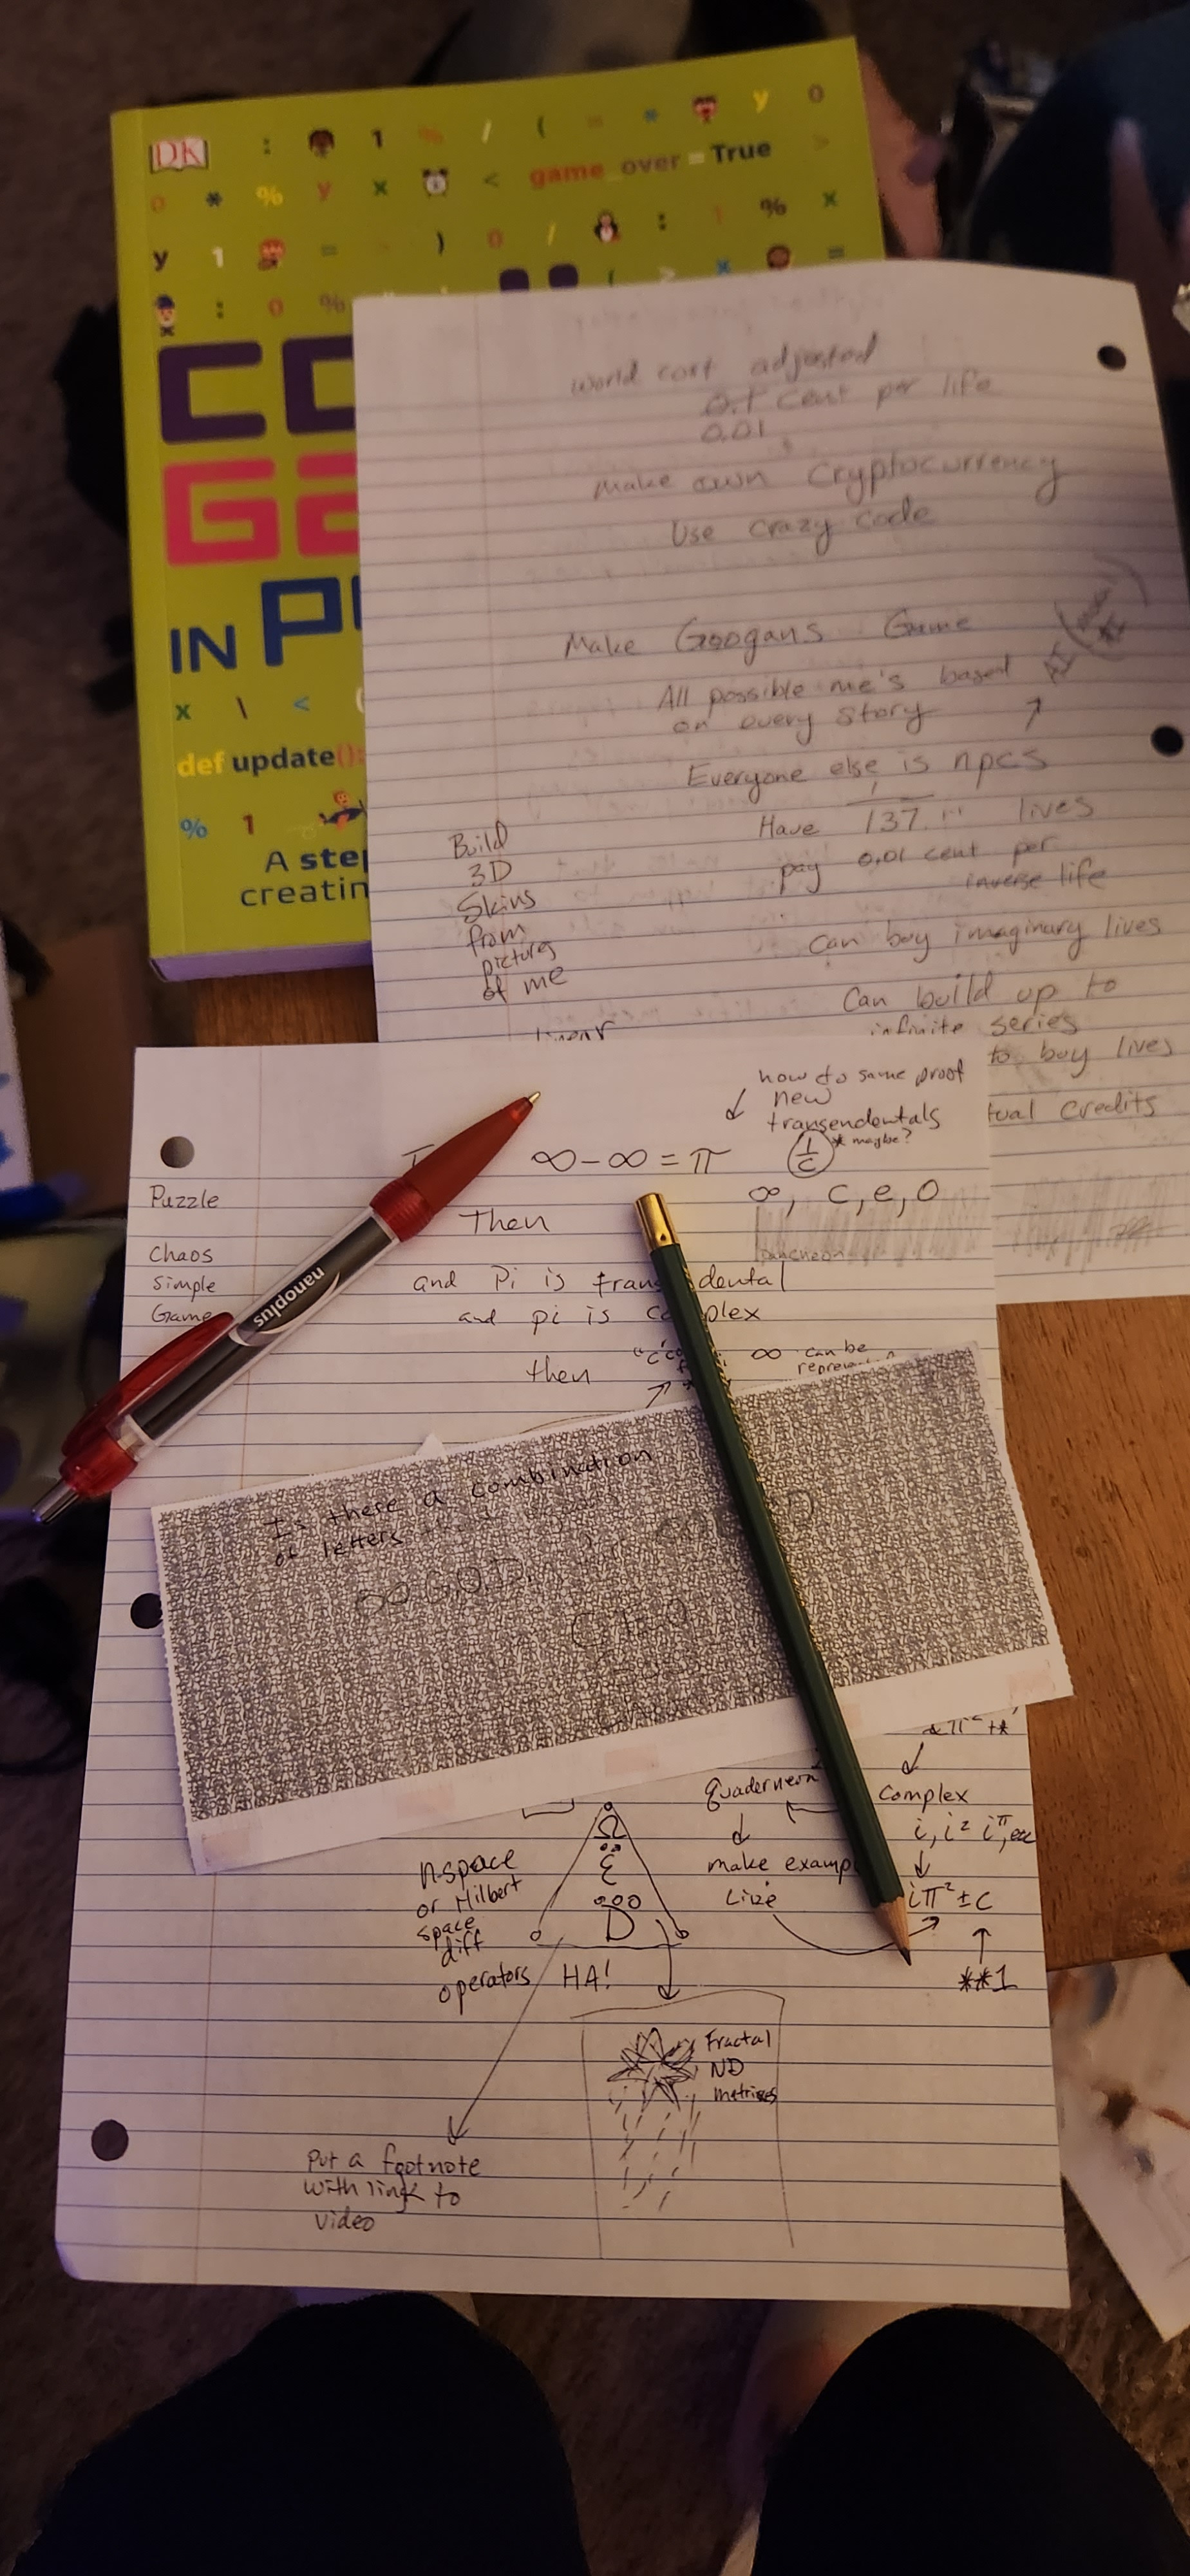 DK : 1 % / ( = * y 0
0 * % y x < game over = True >
y 1 = - ) 0 / : 1 % x
: 0 %
IN
x \ <
def update():
% 1
A step
creatin
world cost adjusted
0.1 cent per life
0.01
Make own Cryptocurrency
Use crazy code
Make Googans Game
All possible me's based
on every story
AI
Everyone else is npcs
Have 1/137... lives
pay 0.01 cent per
inverse life
Can buy imaginary lives
Can build up to
infinite series
to buy lives
tual credits
Build
3D
Skins
from
picturs
of me
linear
how do same proof
new
transendentals
1/c * maybe?
∞ - ∞ = π
∞, c, e, 0
Puzzle
Then
Chaos
Simple
Game
and Pi is trans dental
and pi is co plex
then
∞ can be
nanoplus
Is there a combination
of letters
∞ G.O.D.
complex
i, i² i^π, etc
iπ² ± c
**1
Quaderneon
make examp
Live
n-space
or Hilbert
space
diff
operators
Ω
D
HA!
Fractal
ND
matrixes
put a footnote
with link to
video